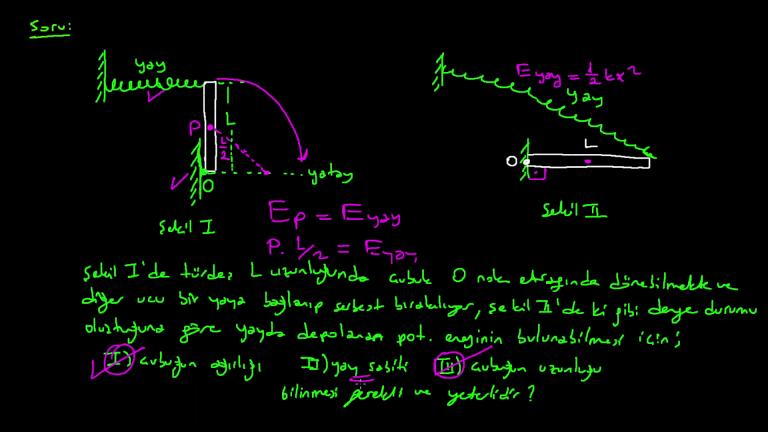 Soru:
yay
E yay = 1/2 kx²
yay
P
L
L/2
L
O
yatay
O
Şekil I
Şekil II
Ep = Eyay
P. L/2 = Eyay
Şekil I'de türdeş L uzunluğunda çubuk O nok. etrafında dönebilmekte ve
diğer ucu bir yaya bağlanıp serbest bırakılıyor, şekil II'de ki gibi denge durumu
oluştuğuna göre yayda depolanan pot. enerjinin bulunabilmesi için;
I) çubuğun ağırlığı II) yay sabiti III) çubuğun uzunluğu
bilinmesi gerekli ve yeterlidir?